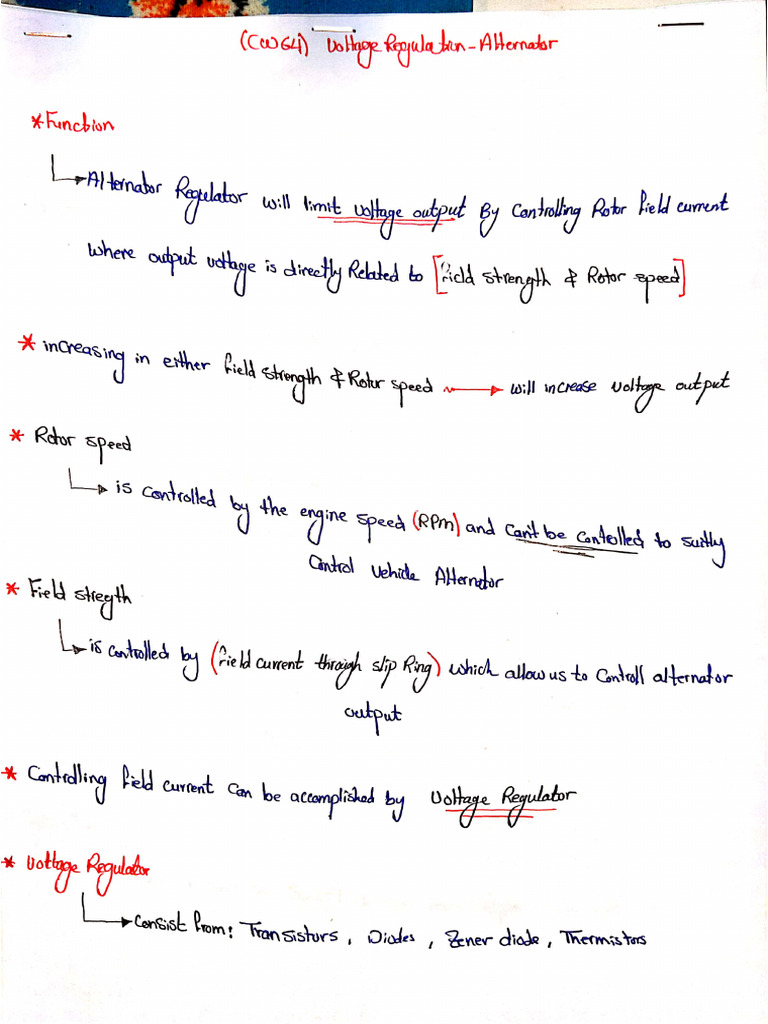 (CW64) Voltage Regulation - Alternator
* Function
Alternator Regulator will limit voltage output By Controlling Rotor field current
where output voltage is directly Related to [field strength & Rotor speed]
* increasing in either field strength & Rotor speed → will increase voltage output
* Rotor speed
is controlled by the engine speed (RPM) and can't be controlled to suitly
Control vehicle Alternator
* Field stregth
is controlled by (field current through slip Ring) which allow us to Controll alternator
output
* Controlling field current can be accomplished by Voltage Regulator
* Voltage Regulator
Consist from: Transistors, Diodes, Zener diode, Thermistors